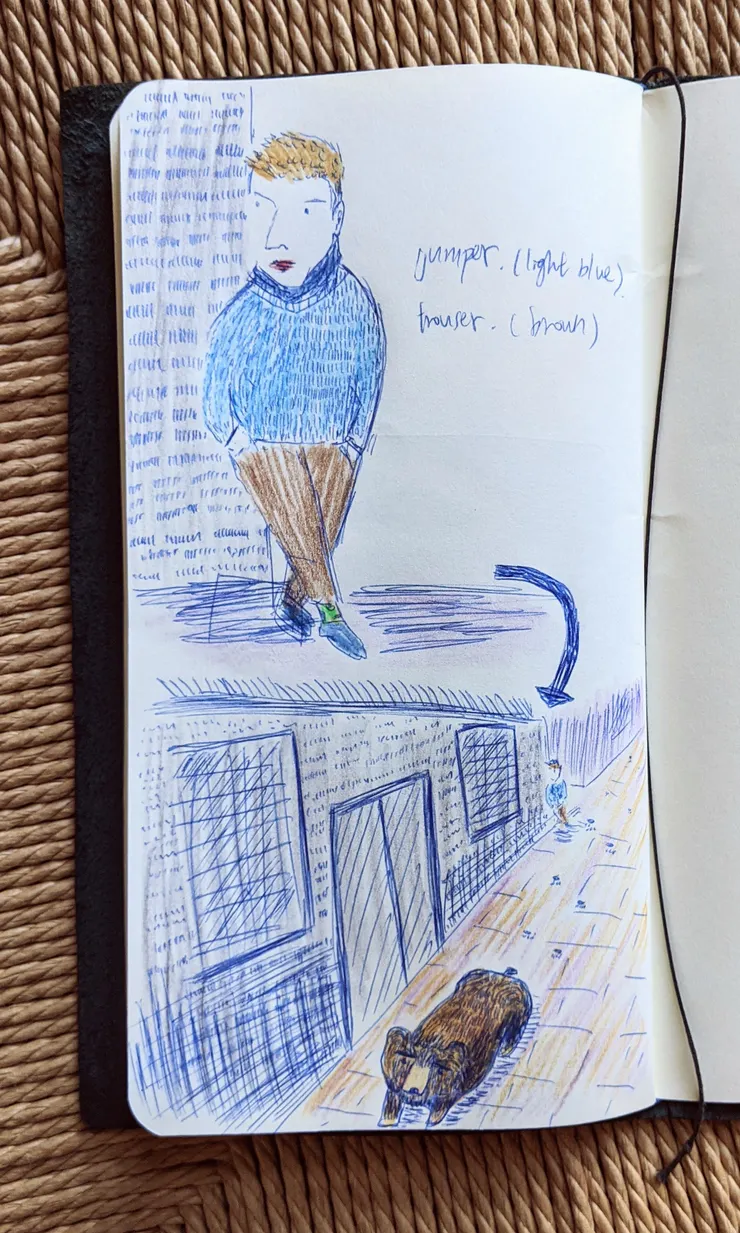 jumper. (light blue).
trouser. (brown)